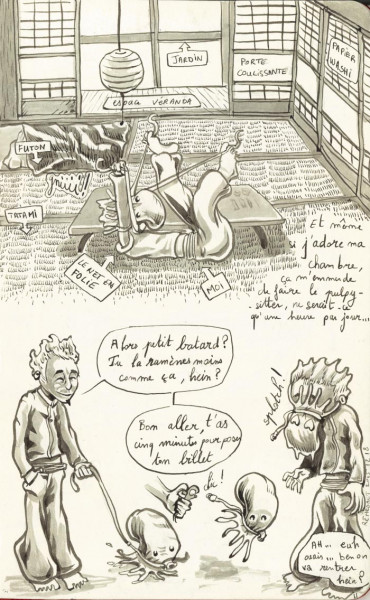 JARDIN
PORTE
COULISSANTE
PAPIER
WASHI
ESPACE VERANDA
FUTON
TATAMI
LE NET EN
FOLIE
MOI
Et même
si j'adore ma
chambre,
ça m'emmerde
de faire le pulpy-
sitter, ne serait-ce
qu'une heure par jour...
Alors petit batard?
Tu la ramènes moins
comme ça, hein?
Bon aller, t'as
cinq minutes pour poser
ton billet
clic!
splotch!
AH... euh
ouais... ben on
va rentrer
hein?